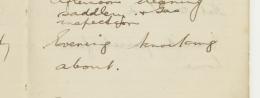 Afternoon cleaning
saddlery & Gas
inspection
Evening knocking
about.